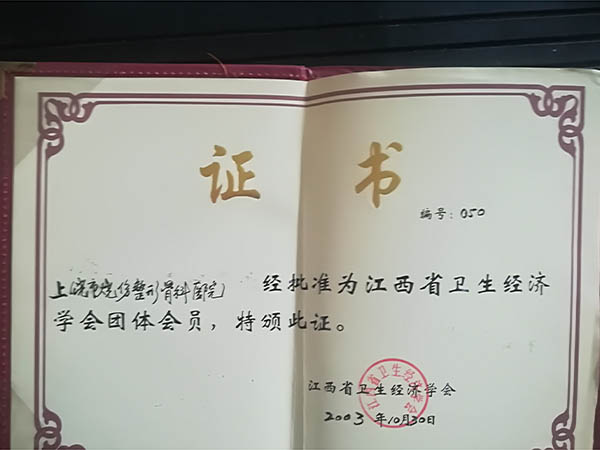 证 书
编号：050
上饶市烧伤整形骨科医院 经批准为江西省卫生经济
学会团体会员，特颁此证。
江西省卫生经济学会
江西省卫生经济学会
2003 年10月30日